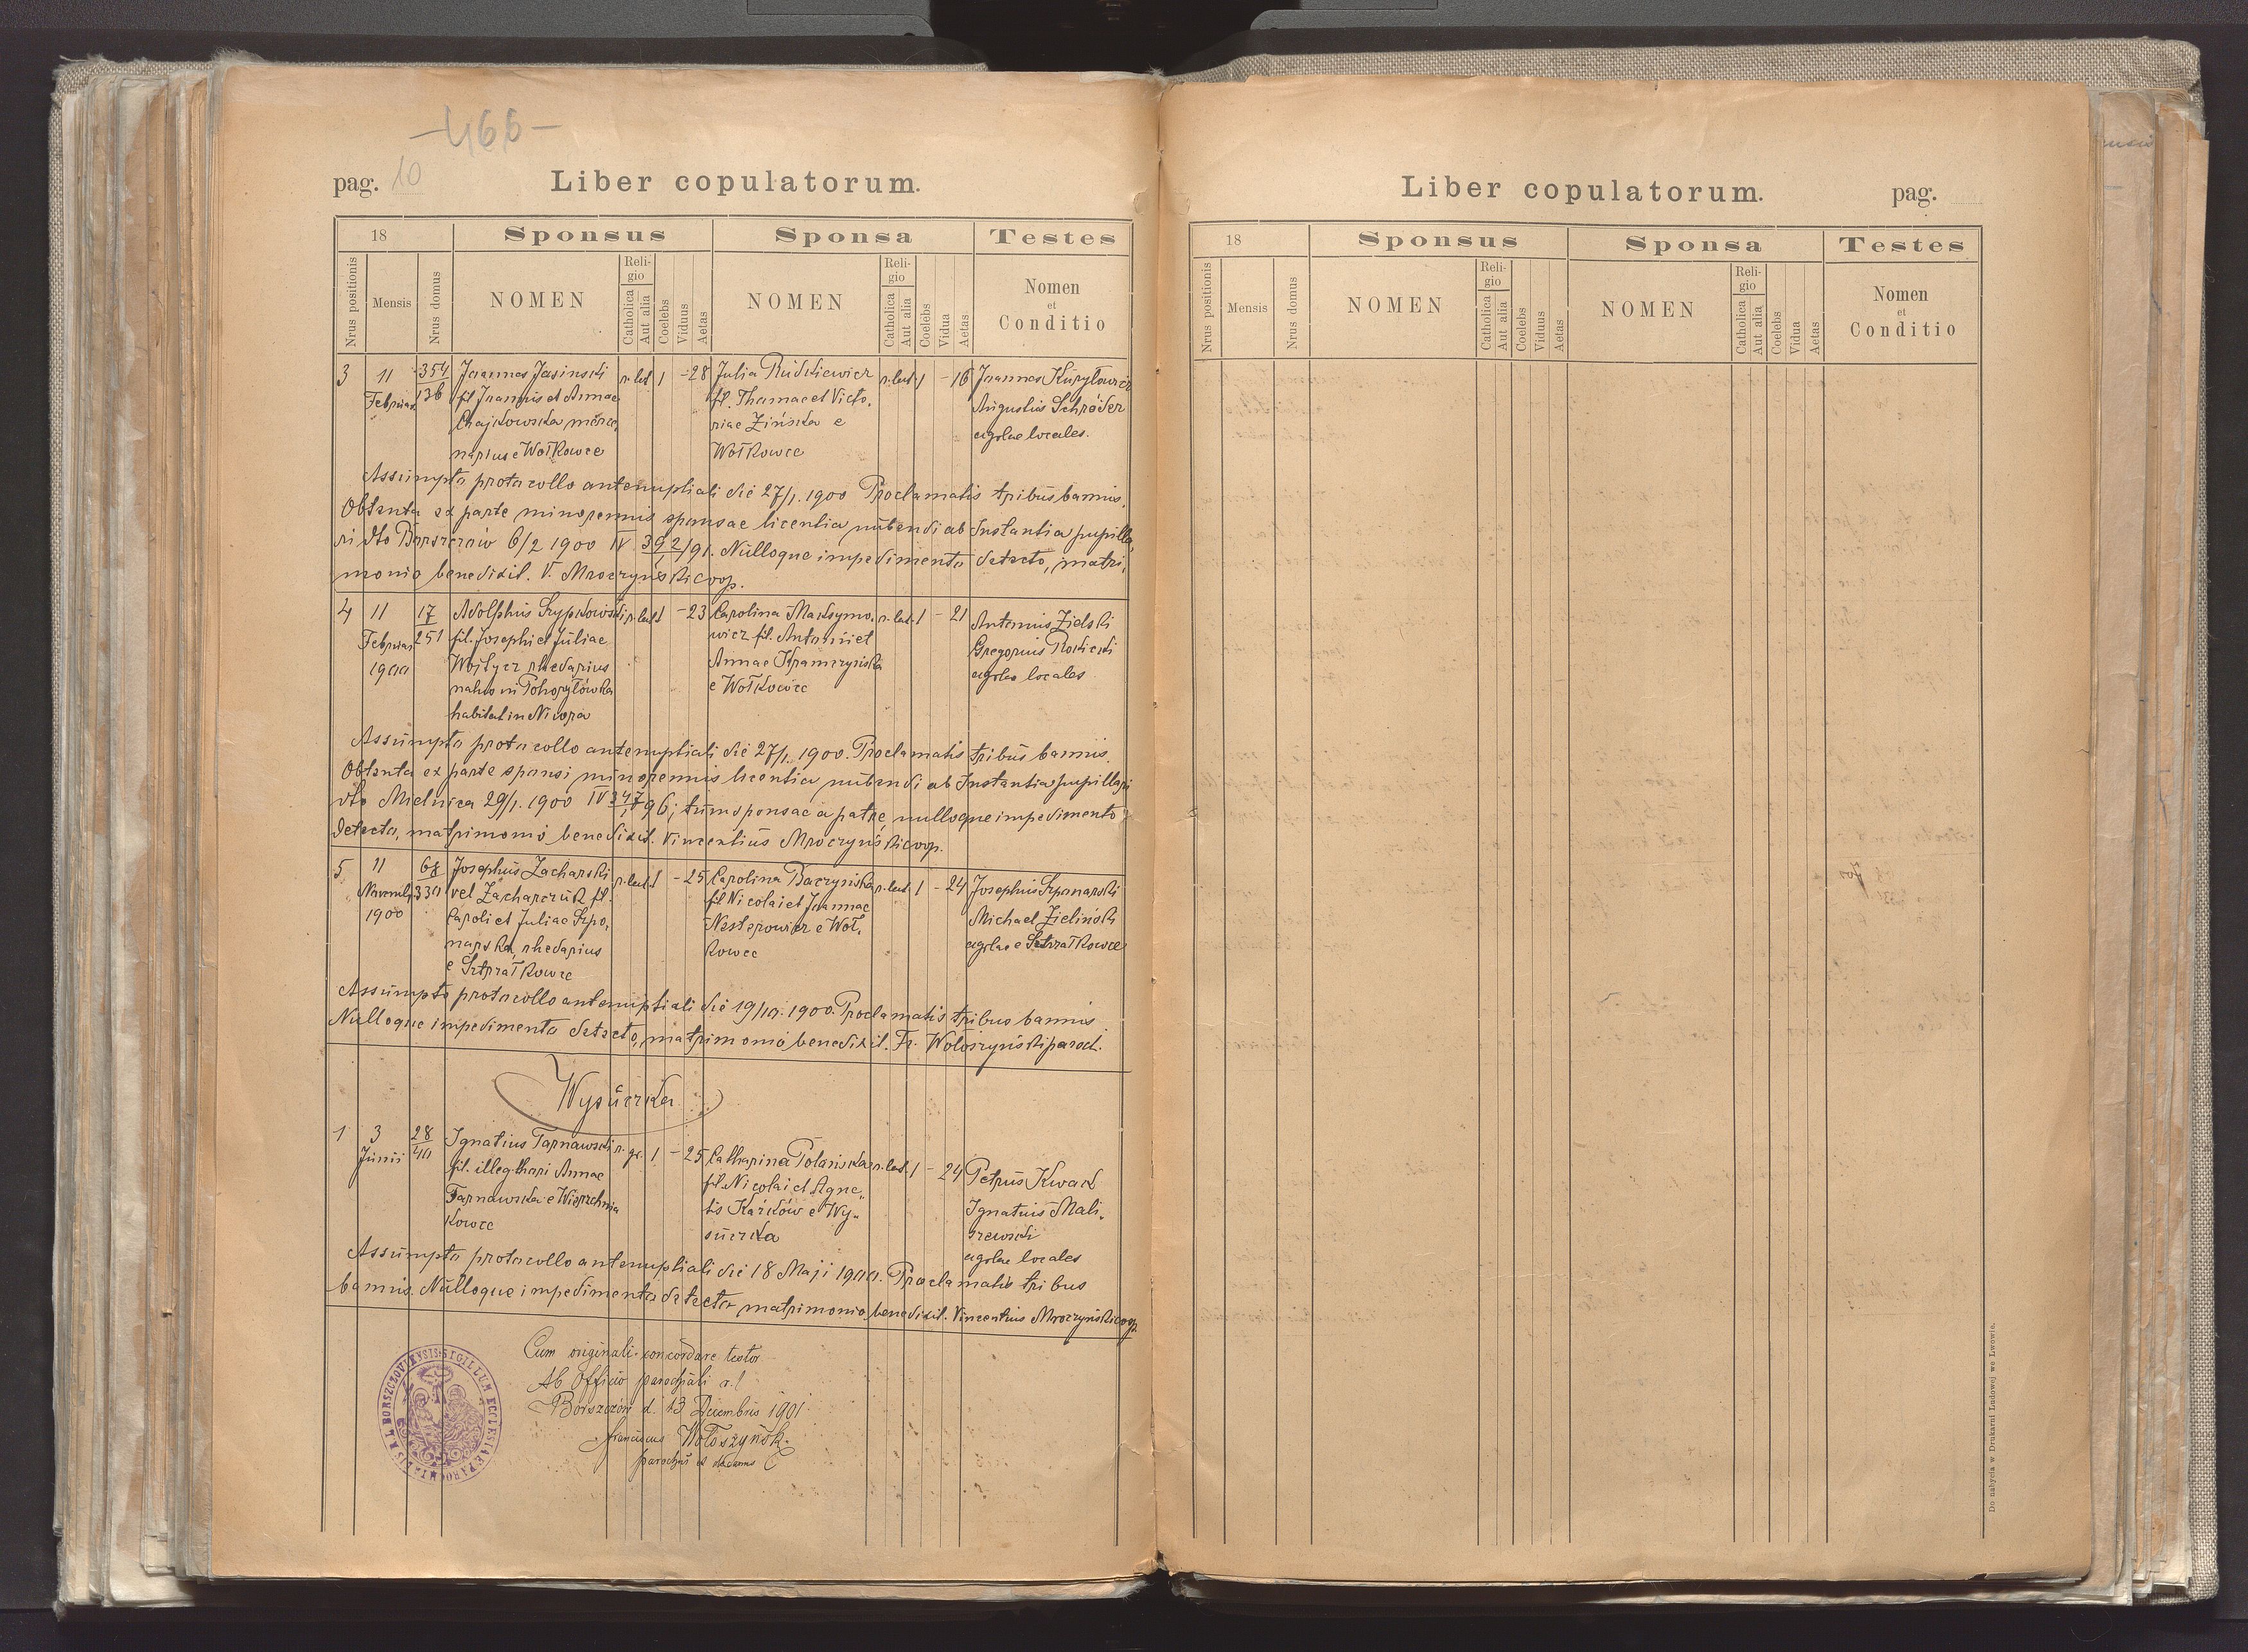 -466-
pag. 10
Liber copulatorum.
18
Sponsus
Sponsa
Testes
Nrus positionis
Mensis
Nrus domus
NOMEN
Religio
Catholica
Aut alia
Coelebs
Viduus
Aetas
NOMEN
Religio
Catholica
Aut alia
Coelebs
Vidua
Aetas
Nomen
et
Conditio
3 11 354 Joannes Jasinski r. lat. 1 - 28 Julia Rudkiewicz r. lat. 1 - 16 Joannes Kuryłowicz
Februar. 136 fil. Joannis et Annae fil. Thomae et Victo, Augustius Schröder
Chajkowska merce, riae Zińska e agrlae locales.
narius e Wołkowce Wołkowce
Assumpto protocollo antenuptiali die 27/1. 1900 Proclamatis tribus bannis.
Obtenta ex parte minorennis sponsae licentia nubendi ab Instantia pupilla,
ri dto Borszczów 6/2 1900 IV 39,2/91. Nulloque impedimento detecto, matri,
monio benedixit. V. Mroczyński coop.
4 11 17 Adolphus Szypkowski r. lat. 1 - 23 Carolina Maksymo, r. lat. 1 - 21 Antonius Zielski
Februar. 251 fil. Josephi et Juliae wicz fil. Antonii et Gregorius
1900 Wojtycz rhedarius Annae Kramczyńska agrlae locales
natus in Tohorylówka e Wołkowce
habitat in Nivora
Assumpto protocollo antenuptiali die 27/1. 1900. Proclamatis tribus bannis.
Obtenta ex parte sponsi minorennis licentia nubendi ab Instantia pupillari
dto Mielnica 29/1. 1900 IV 347/96; tum sponsae a patre, nulloque impedimento
detecto, matrimonio benedixit. Vincentius Mroczyński coop.
5 11 68 Josephus Zacharski r. lat. 1 - 25 Carolina Baczyńska r. lat. 1 - 24 Josephus Szponarski
Novemb. 330 vel Zacharczuk fil. fil. Nicolai et Joannae Michael Zieliński
1900 Caroli et Juliae Szpo, Nesterowicz e Woł, agrlae e
narska, rhedarius kowce
e
Assumpto protocollo antenuptiali die 19/10. 1900. Proclamatis tribus bannis
Nulloque impedimento detecto, matrimonio benedixit. Fr. Wołoszyński paroch.
Wysuczka
1 3 28 Ignatius Tarnawski r. gr. 1 - 25 Catharina Polańska r. lat. 1 - 24 Petrus Kwak
Junii 40 fil. illeg. thori Annae fil. Nicolai et Agne, Ignatius Mali,
Tarnawska e Wierzchnia tis Karków e Wy, szewski
kowce suczka agrlae locales
Assumpto protocollo antenuptiali die 18 Maji 1900. Proclamatis tribus
bannis. Nulloque impedimento detecto matrimonio benedixit. Vincentius Mroczyński coop.
Cum originali concordare testor
Ab Officio parochiali r. l.
Borszczów d. 13 Decembris 1901
Franciscus Wołoszyński
parochus et decanus
SIGILLUM ECCLESIAE PAROCHIALIS R. L. BORSZCZOVIENSIS
Liber copulatorum.
pag.
18
Sponsus
Sponsa
Testes
Nrus positionis
Mensis
Nrus domus
NOMEN
Religio
Catholica
Aut alia
Coelebs
Viduus
Aetas
NOMEN
Religio
Catholica
Aut alia
Coelebs
Vidua
Aetas
Nomen
et
Conditio
Do nabycia w Drukarni Ludowej we Lwowie.